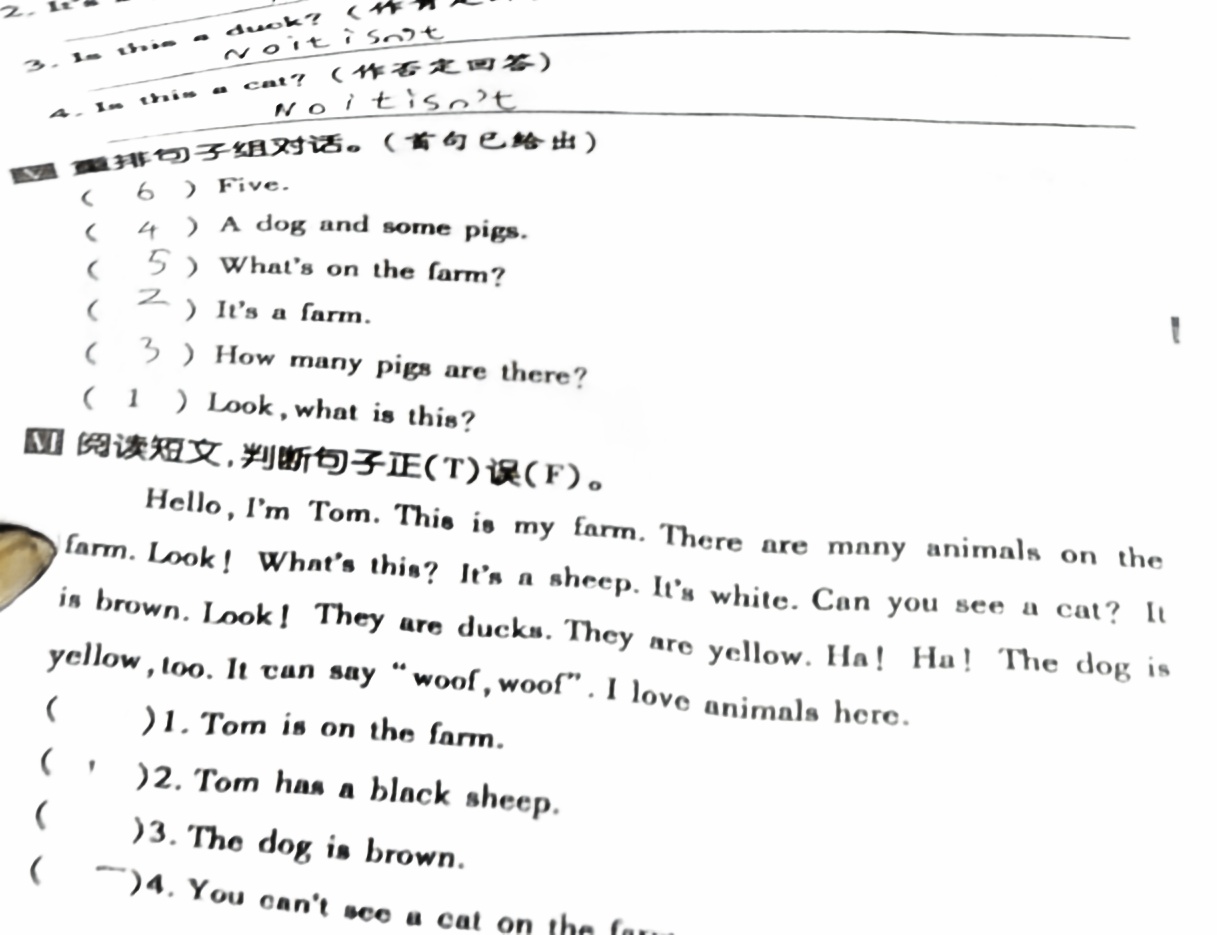 2. It's
3. Is this a duck? (作否定
No it isn't
4. Is this a cat? (作否定回答)
No it isn't
V 重排句子组对话。(首句已给出)
( 6 ) Five.
( 4 ) A dog and some pigs.
( 5 ) What's on the farm?
( 2 ) It's a farm.
( 3 ) How many pigs are there?
( 1 ) Look, what is this?
VI 阅读短文,判断句子正(T)误(F)。
Hello, I'm Tom. This is my farm. There are many animals on the
farm. Look! What's this? It's a sheep. It's white. Can you see a cat? It
is brown. Look! They are ducks. They are yellow. Ha! Ha! The dog is
yellow, too. It can say "woof, woof". I love animals here.
( )1. Tom is on the farm.
( )2. Tom has a black sheep.
( )3. The dog is brown.
( )4. You can't see a cat on the farm